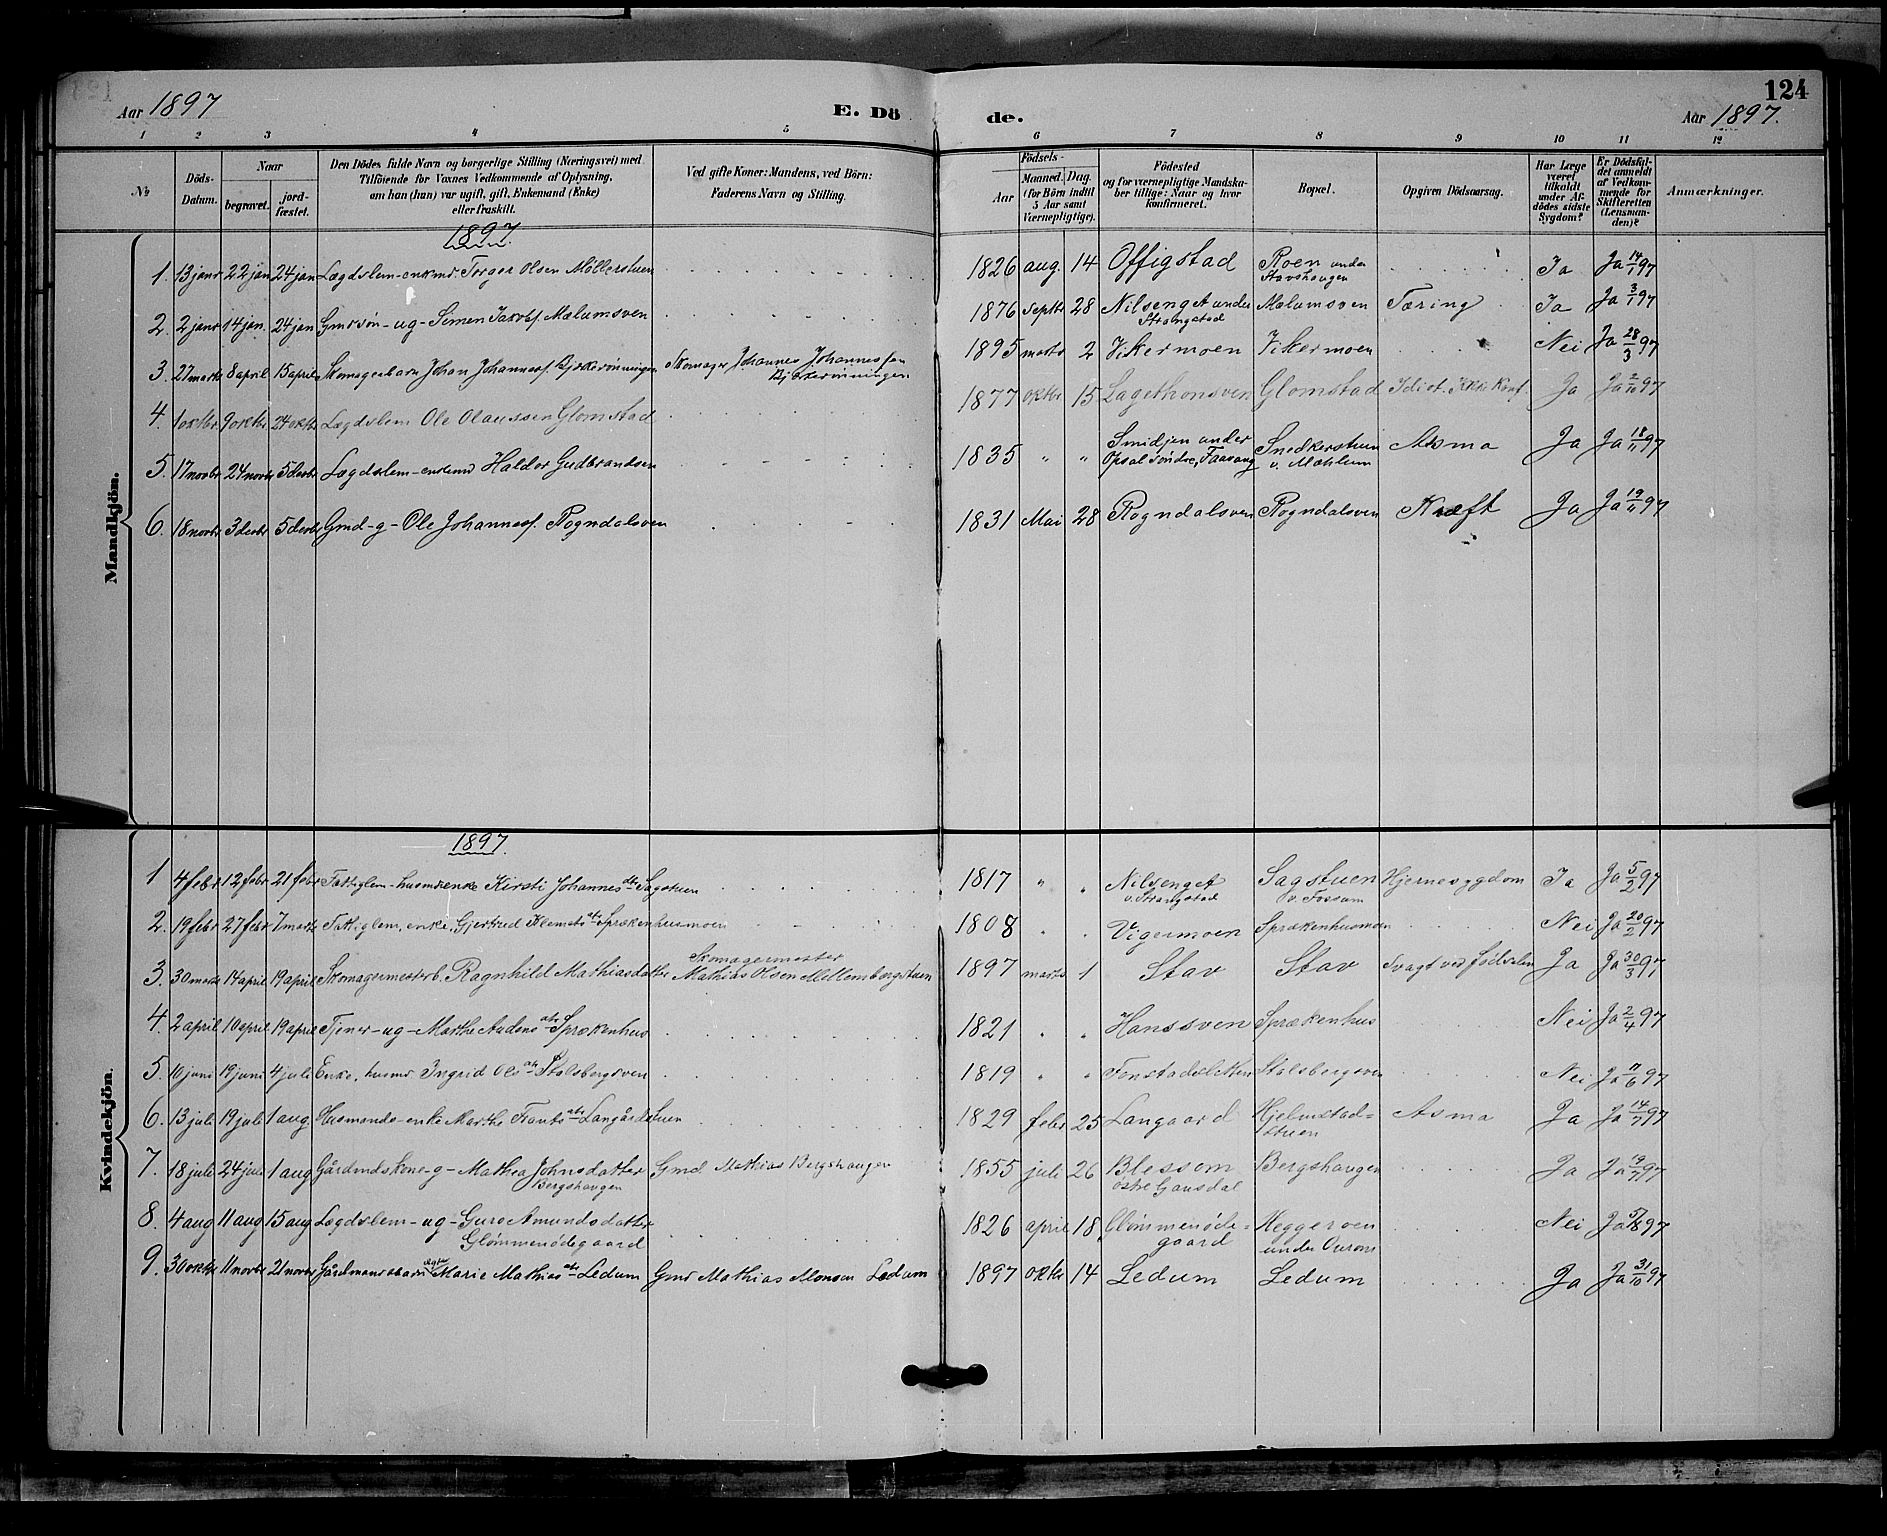 124
Aar 1897 E. Dö de. Aar 1897.
1 2 3 4 5 6 7 8 9 10 11 12
№
Döds-Datum.
Naar
begravet.
jord-fæstet.
Den Dödes fulde Navn og borgerlige Stilling (Næringsvei) med
Tilföiende for Voxnes Vedkommende af Oplysning,
om han (hun) var ugift, gift, Enkemand (Enke)
eller fraskilt.
Ved gifte Koner: Mandens, ved Börn:
Faderens Navn og Stilling.
Födsels-
Aar
Maaned. Dag.
(for Börn indtil
5 Aar samt
Værnepligtige).
Födested
og for værnepligtige Mandska-
ber tillige: Naar og hvor
konfirmeret.
Bopæl.
Opgiven Dödsaarsag.
Har Læge
været
tilkaldt
under Af-
dödes sidste
Sygdom?
Er Dödsfal-
det anmeldt
af Vedkom-
mende for
Skifteretten
(Lensman-
den)?
Anmærkninger.
Mandkjön.
1897.
1. 13 janr 22 jan 24 jan Lægdslem-enkmd. Torger Olsen Möllerstuen 1826 aug. 14 Offigstad Roen under Stavshaugen Ja Ja 14/1 97
2. 2 janr 14 jan. 24 jan Gmdsøn-ug-Simen Jakobs. Mælumsven 1876 Septbr 28 Nilsenget under Strangstad Mælumsven Tæring Ja Ja 3/1 97
3. 27 marts 8 april 15 april Skomagerbarn Johan Johanness. Bjørkerønningen Skomager Johannes Johannessen Bjørkerønningen 1895 marts 2 Vikermoen Vikermoen Nei Ja 28/3 97
4. 1 oktbr 9 oktbr 24 oktbr Lægdslem Ole Olaussen Glomstad 1877 oktbr 15 Lagethonsven Glomstad Idiot. Ikke konf. Ja Ja 2/10 97
5. 17 novbr 24 novbr 5 decbr Lægdslem-enkemd Haldor Gudbrandsen 1835 " " Smidjen under Opsal søndre, Faavang Snedkerstuen v. Mæhlum Asma Ja Ja 18/11 97
6. 18 novbr 3 decbr 5 decbr Gmd-g-Ole Johanness. Rogndalsven 1831 Mai 28 Rogndalsven Rogndalsven Kræft Ja Ja 19/11 97
Kvindekjön.
1897.
1 4 febr 12 febr 21 febr Fattiglem-husmdsenke Kirsti Johannesdtr Sagstuen 1817 " " Nilsenget v. Strangstad Sagstuen v. Fossum Hjernesygdom Ja Ja 5/2 97
2. 19 febr 27 febr 7 marts Fattiglem, enke, Gjertrud Klemetsdtr Sprækenhusmoen 1808 " " Vigermoen Sprækenhusmoen Nei Ja 20/2 97
3. 30 marts 14 april 19 april Skomagermesterb. Ragnhild Mathiasdatter Skomagermester Mathias Olsen Mellembergstuen 1897 marts 1 Stav Stav Svagt ved fødselen Ja Ja 30/3 97
4. 2 april 10 april 19 april Tjener-ug-Marthe Audensdtr Sprækenhus 1821 " " Hanssven Sprækenhus Nei Ja 2/4 97
5. 10 juni 19 juni 4 juli Enke, husmd. Ingrid Olsdtr Stalsbergsven 1819 " " Fonstadsletten Stalsbergsven Nei Ja 11/6 97
6. 13 juli 19 juli 1 aug. Husmands-enke Marthe Frantsdtr Langårdstuen 1829 febr 25 Langaard Hjelmstad=stuen Asma Ja Ja 14/7 97
7. 18 juli 24 juli 1 aug Gårdmdskone-g-Mathea Johnsdatter Bergshaugen Gmd Mathias Bergshaugen 1855 juli 26 Blessom østre Gausdal Bergshaugen Ja Ja 19/7 97
8. 4 aug 11 aug 15 aug Lægdslem-ug-Guro Amundsdatter Glømmenødegaard 1826 april 18 Glømmenøde=gaard Heggerven under Ourom Nei Ja 5/8 97
9. 30 oktbr 11 novbr 21 novbr Gårdmandsbarn ægte Marie Mathiasdtr Ledum Gmd Mathias Monsen Ledum 1897 oktbr 14 Ledum Ledum Ja Ja 31/10 97